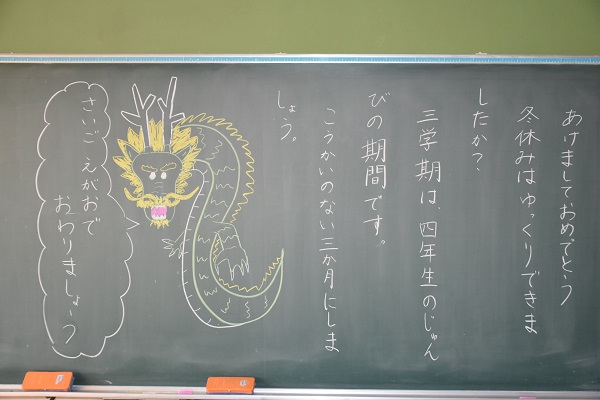 あけましておめでとう
冬休みはゆっくりできま
したか？
三学期は、四年生のじゅん
びの期間です。
こうかいのない三か月にしま
しょう。
さいご えがおで
おわりましょう